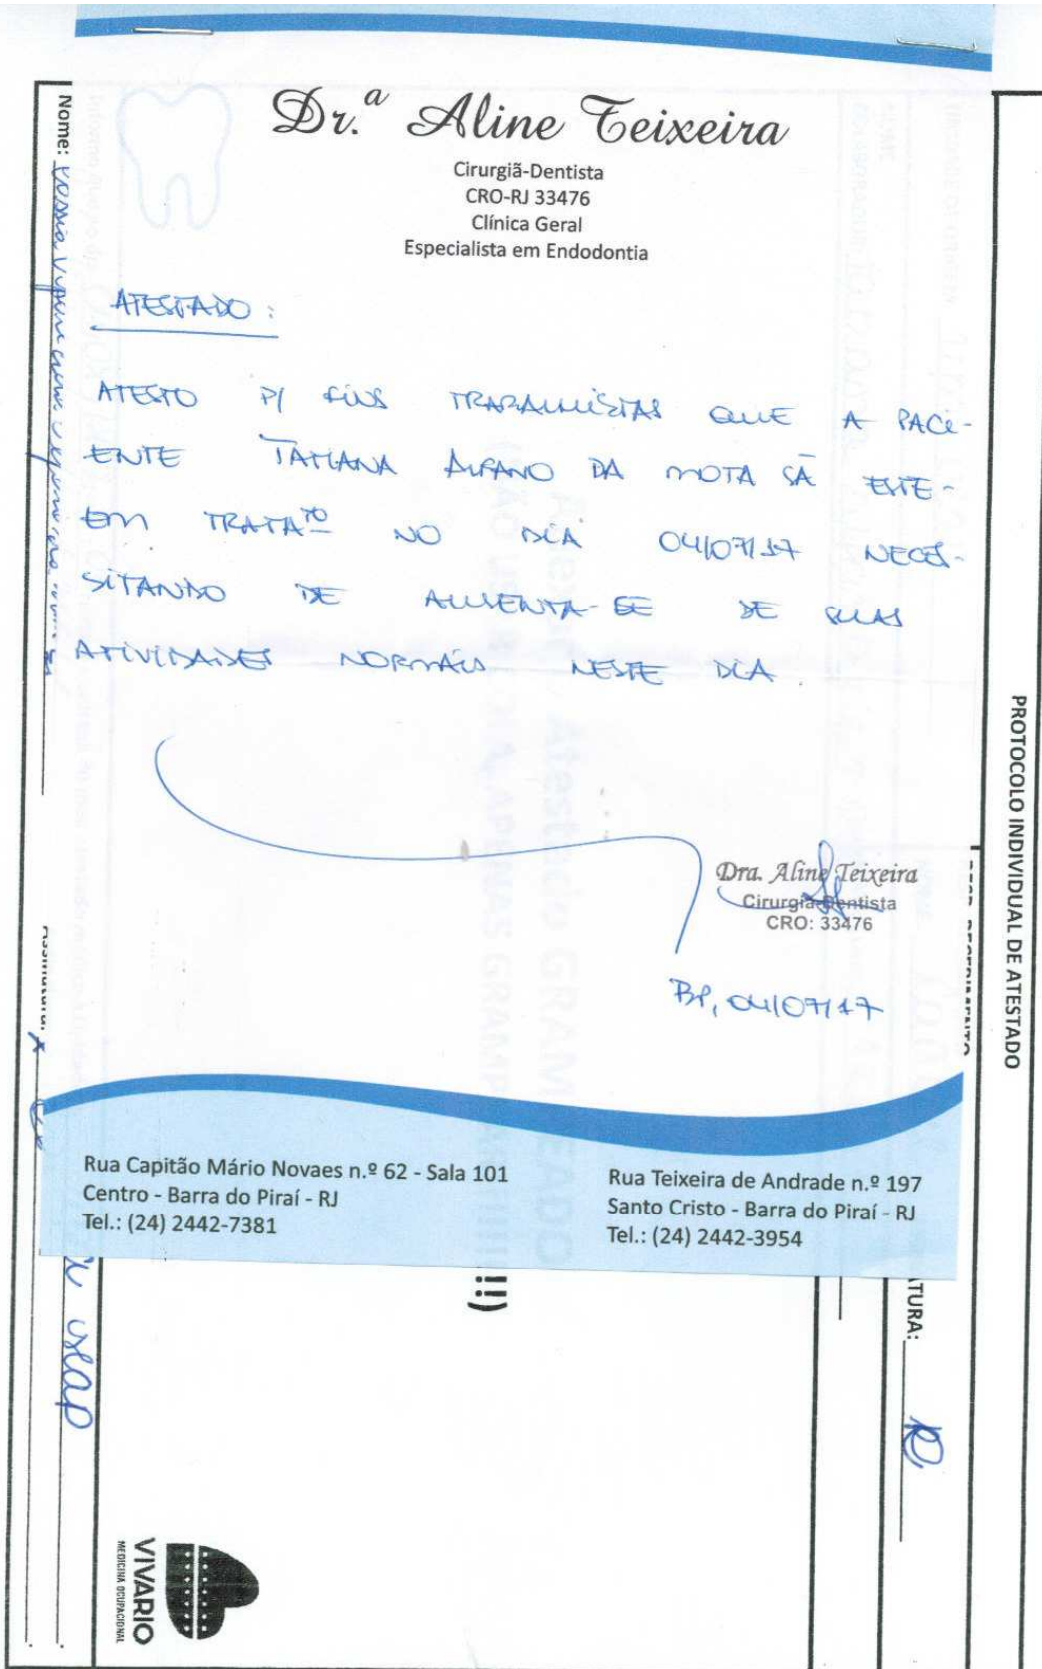 Dr.ª Aline Teixeira
Cirurgiã-Dentista
CRO-RJ 33476
Clínica Geral
Especialista em Endodontia
ATESTADO:
ATESTO P/ FINS TRABALHISTAS QUE A PACI-
ENTE TATIANA ALFANO DA MOTA SÁ ESTE-
EM TRATATO NO DIA 04/07/17 NECES-
SITANDO DE AUSENTA-SE DE SUAS
ATIVIDADES NORMAIS NESTE DIA.
Dra. Aline Teixeira
Cirurgiã-Dentista
CRO: 33476
BP, 04/07/17
Rua Capitão Mário Novaes n.º 62 - Sala 101
Centro - Barra do Piraí - RJ
Tel.: (24) 2442-7381
Rua Teixeira de Andrade n.º 197
Santo Cristo - Barra do Piraí - RJ
Tel.: (24) 2442-3954
PROTOCOLO INDIVIDUAL DE ATESTADO
TURA:
!!!)
Nome:
Assinatura: x
VIVARIO
MEDICINA OCUPACIONAL